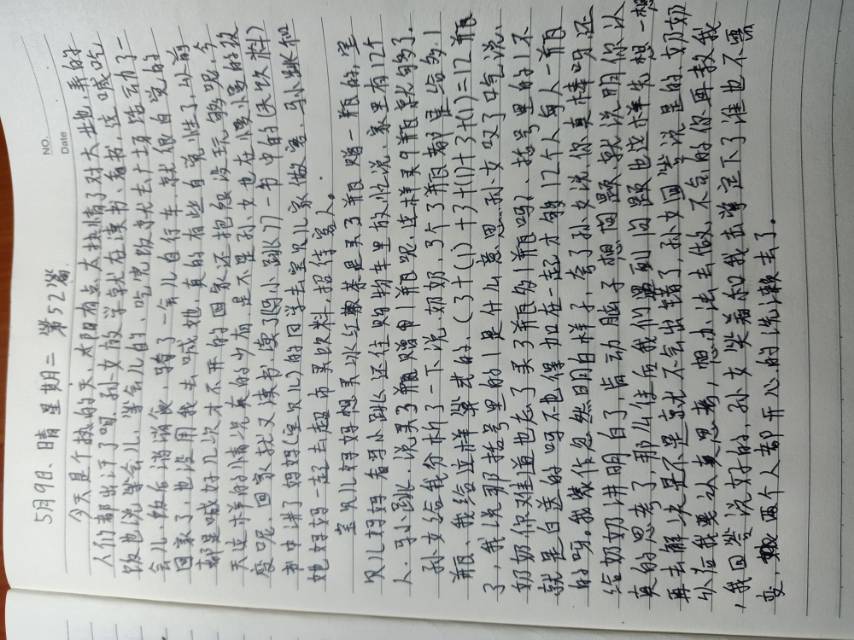 NO.
Date
5月9日、晴 星期二 第52篇
今天是个热的天、太阳有点太热情了对大地、弄的
人们都出汗了呢、孙女放学就在读书、看书、连喊吃
饭也说等会儿、等会儿的、吃完饭寻求去广场活动了一
会儿、饭后消消食、骑了一会儿自行车、就很自觉的
回家了、也没用我去喊她、真的有些自觉性了、以前
都是喊好几次才不开的回家还抱怨没玩够呢、今
天这样的情况真的少有、是不是孙女也在慢慢的改
变呢、回家就又读书、读了《冯小跳》一书中的(买饮料)
书中讲了妈妈(宝贝儿)的同学去宝贝儿家做客、马小跳和
她妈妈一起去超市买饮料、招待客人。
宝贝儿妈妈想买冰红茶是买3瓶赠一瓶的、宝
贝儿妈妈看马小跳还往购物车里放忙说、家里有12个
人、马小跳、说买3瓶赠1瓶呢、这样买9瓶就够了。
孙女给我分析了一下说、奶奶、3个3瓶都是给多1
瓶、我给这样算式的、(3+(1)+3+(1)+3+(1)=12瓶
了、我说那括号里的1是什么意思、孙女叹了口气说、
奶奶你难道也忘了买3瓶多1瓶吗?、括号里的1不
就是白送的吗不也得加在一起才够12个人每人一瓶
的吗。我装作忽然明白样子、夸了孙女说你真棒吗还
给奶奶讲明白了、肯动脑子想问题、就说明你认
真的思考了、那么往后我们遇到问题也这样先想一想
再去解决是不是就不会出错了、孙女回答说是的、奶奶
以后我要认真思考、想办法去做、不会的你再教我
、我回答说好的、孙女笑着和我击掌定下了谁也不需
变、两个人都开心的洗漱去了。